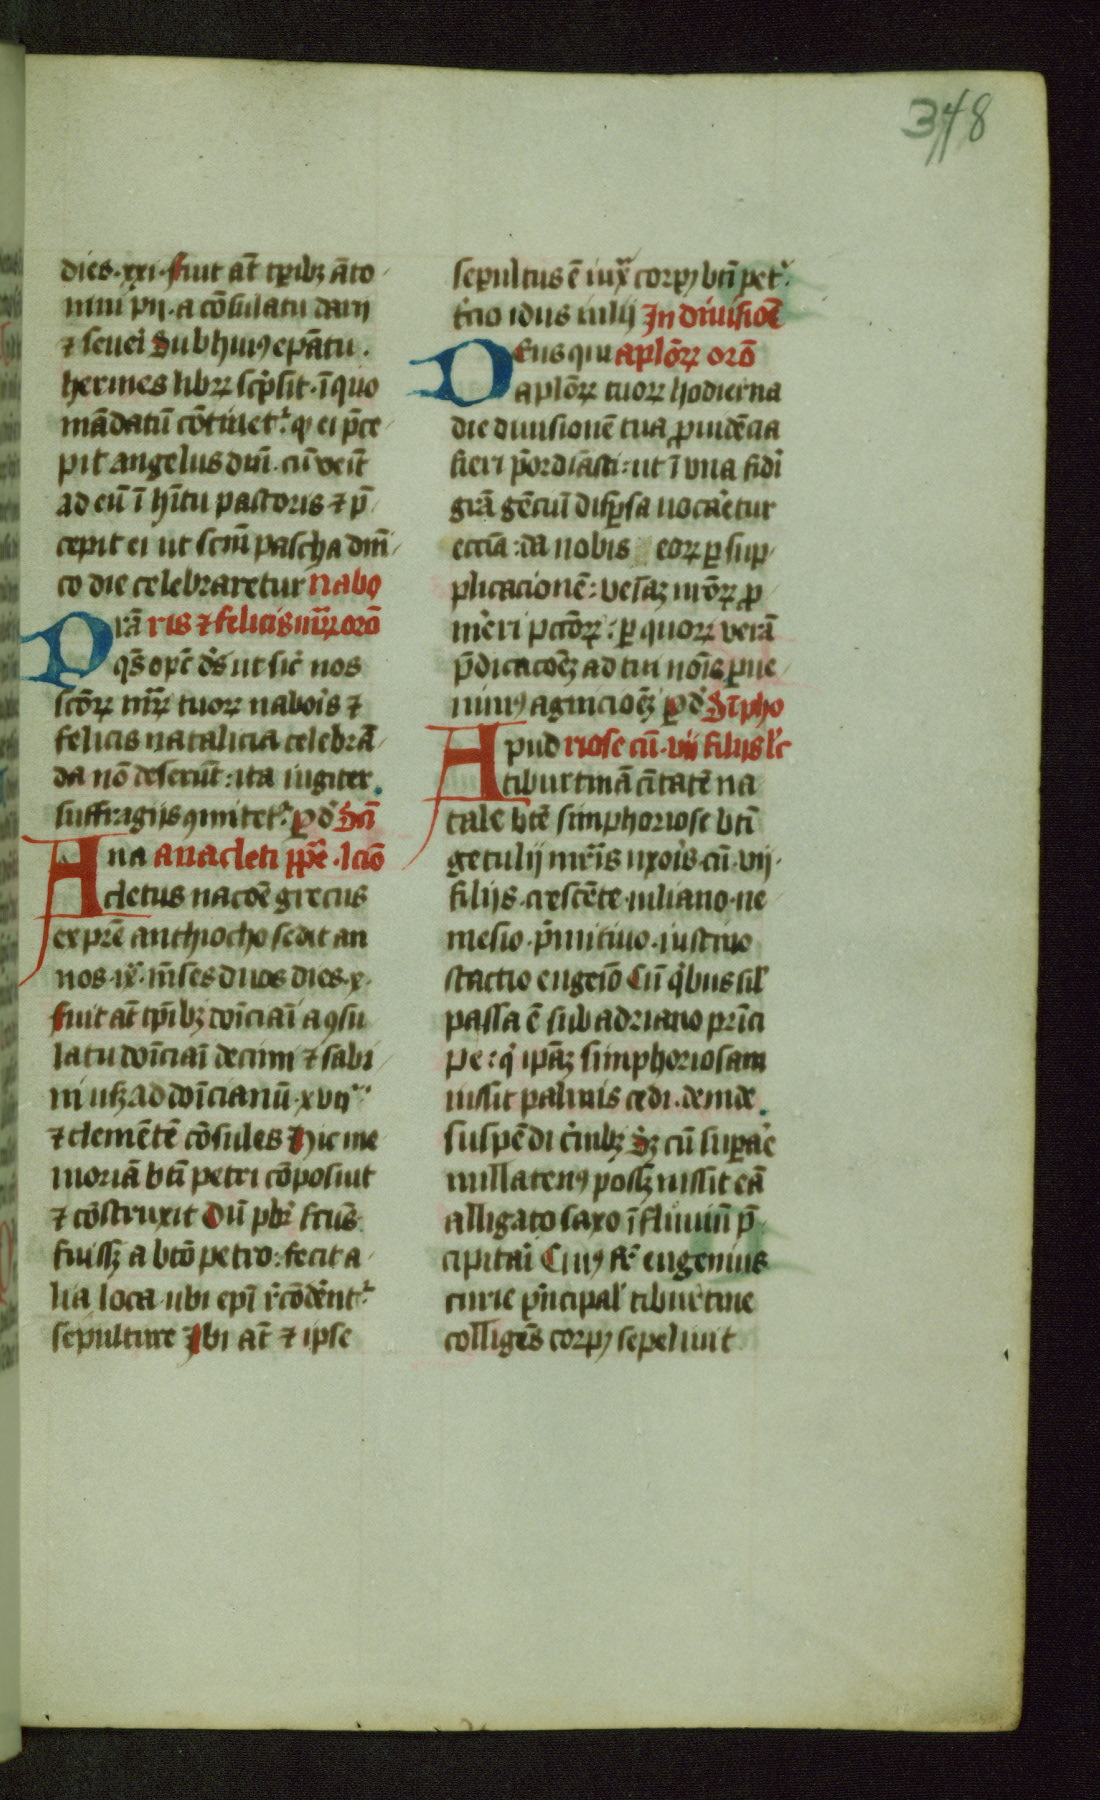 348
dies·xxi·fuit at̄ tꝑib; āto
nini pij·a cōsulatu clari
⁊ seueri Sub huiꝰ epātu.
hermes librꝝ scͥpsit·ī quo
mādatū cōtinet᷑ ꝙ ei p̄ce
pit angelus dn̄i·cū veīt
ad eū ī hītu pastoris ⁊ p̄
cepit ei ut scm̄ pascha dn̄i
co die celebraretur nabo
Prā ris ⁊ felicis mr̄ꝝ orō
qs̄ opc̄ ds̄ ut sic̄ nos
scōꝝ mr̄ꝝ tuoꝝ naboris ⁊
felicis natalicia celebrā
da nō deserūt: ita iugiter
suffragijs ꝯmitet᷑ ꝑ d' Sci
Ana anacleti ꝑpe·lcio
cletus nacōe grecus
ex pr̄e anthiocho sedit an
nos·ix·m̄ses duos dies·x·
fuit at̄ tꝑib; doīciaī a ꝯsu
latu doīciaī decimi ⁊ sabi
ni usꝫ ad doīcianū·xvij
⁊ clemētē cōsules Hic me
moriā bti petri cōposuit
⁊ cōstruxit Dū pbr̄ fctus
fuissꝫ a btō petro: fecit a
lia loca ubi epī rcōdent᷑
sepulture Ibi at̄ ⁊ ipse
sepultus ē iux̄ corpꝰ bti pet᷑
tcio idus iulij In diuisiōe
Deus qui aplōꝝ orō
aplōꝝ tuoꝝ hodierna
die diuisionē tua ꝓuidēcia
fieri p̄ordīasti: ut ī una fidei
grā gēciū disꝑsa uocaretur
eccīa: da nobis eoꝝ ꝑ sup
plicacionē: vesaꝫ nr̄oꝝ ꝑ
meri pctōꝝ: ꝑ quoꝝ verā
p̄dicacōeꝫ ad tui nois ꝑue
nimꝰ agnicioeꝫ ꝑ d' Simpho
Apud riose cū·vij filijs lc̄
tiburtinā ciuitatē na
tale bte simphoriose bti
getulij mr̄is uxoris·cū·vij·
filijs·crescēte·iuliano·ne
mesio·p̄mitiuo·iustino
stacteo eugeīo Cū qͥbus sil'
passa ē sub adriano prīci
pe: qͥ ipāꝫ simphoriosam
iussit palmis cedi·deinde
suspēdi crinib; Sꝫ cū suꝑare
nullatenꝰ possꝫ iussit eā
alligato saxo ī fluuiū p̄
cipitari Cuiꝰ fr̄ eugenius
curie p̄ncipal' tiburtine
colligēs corpꝰ sepeliuit